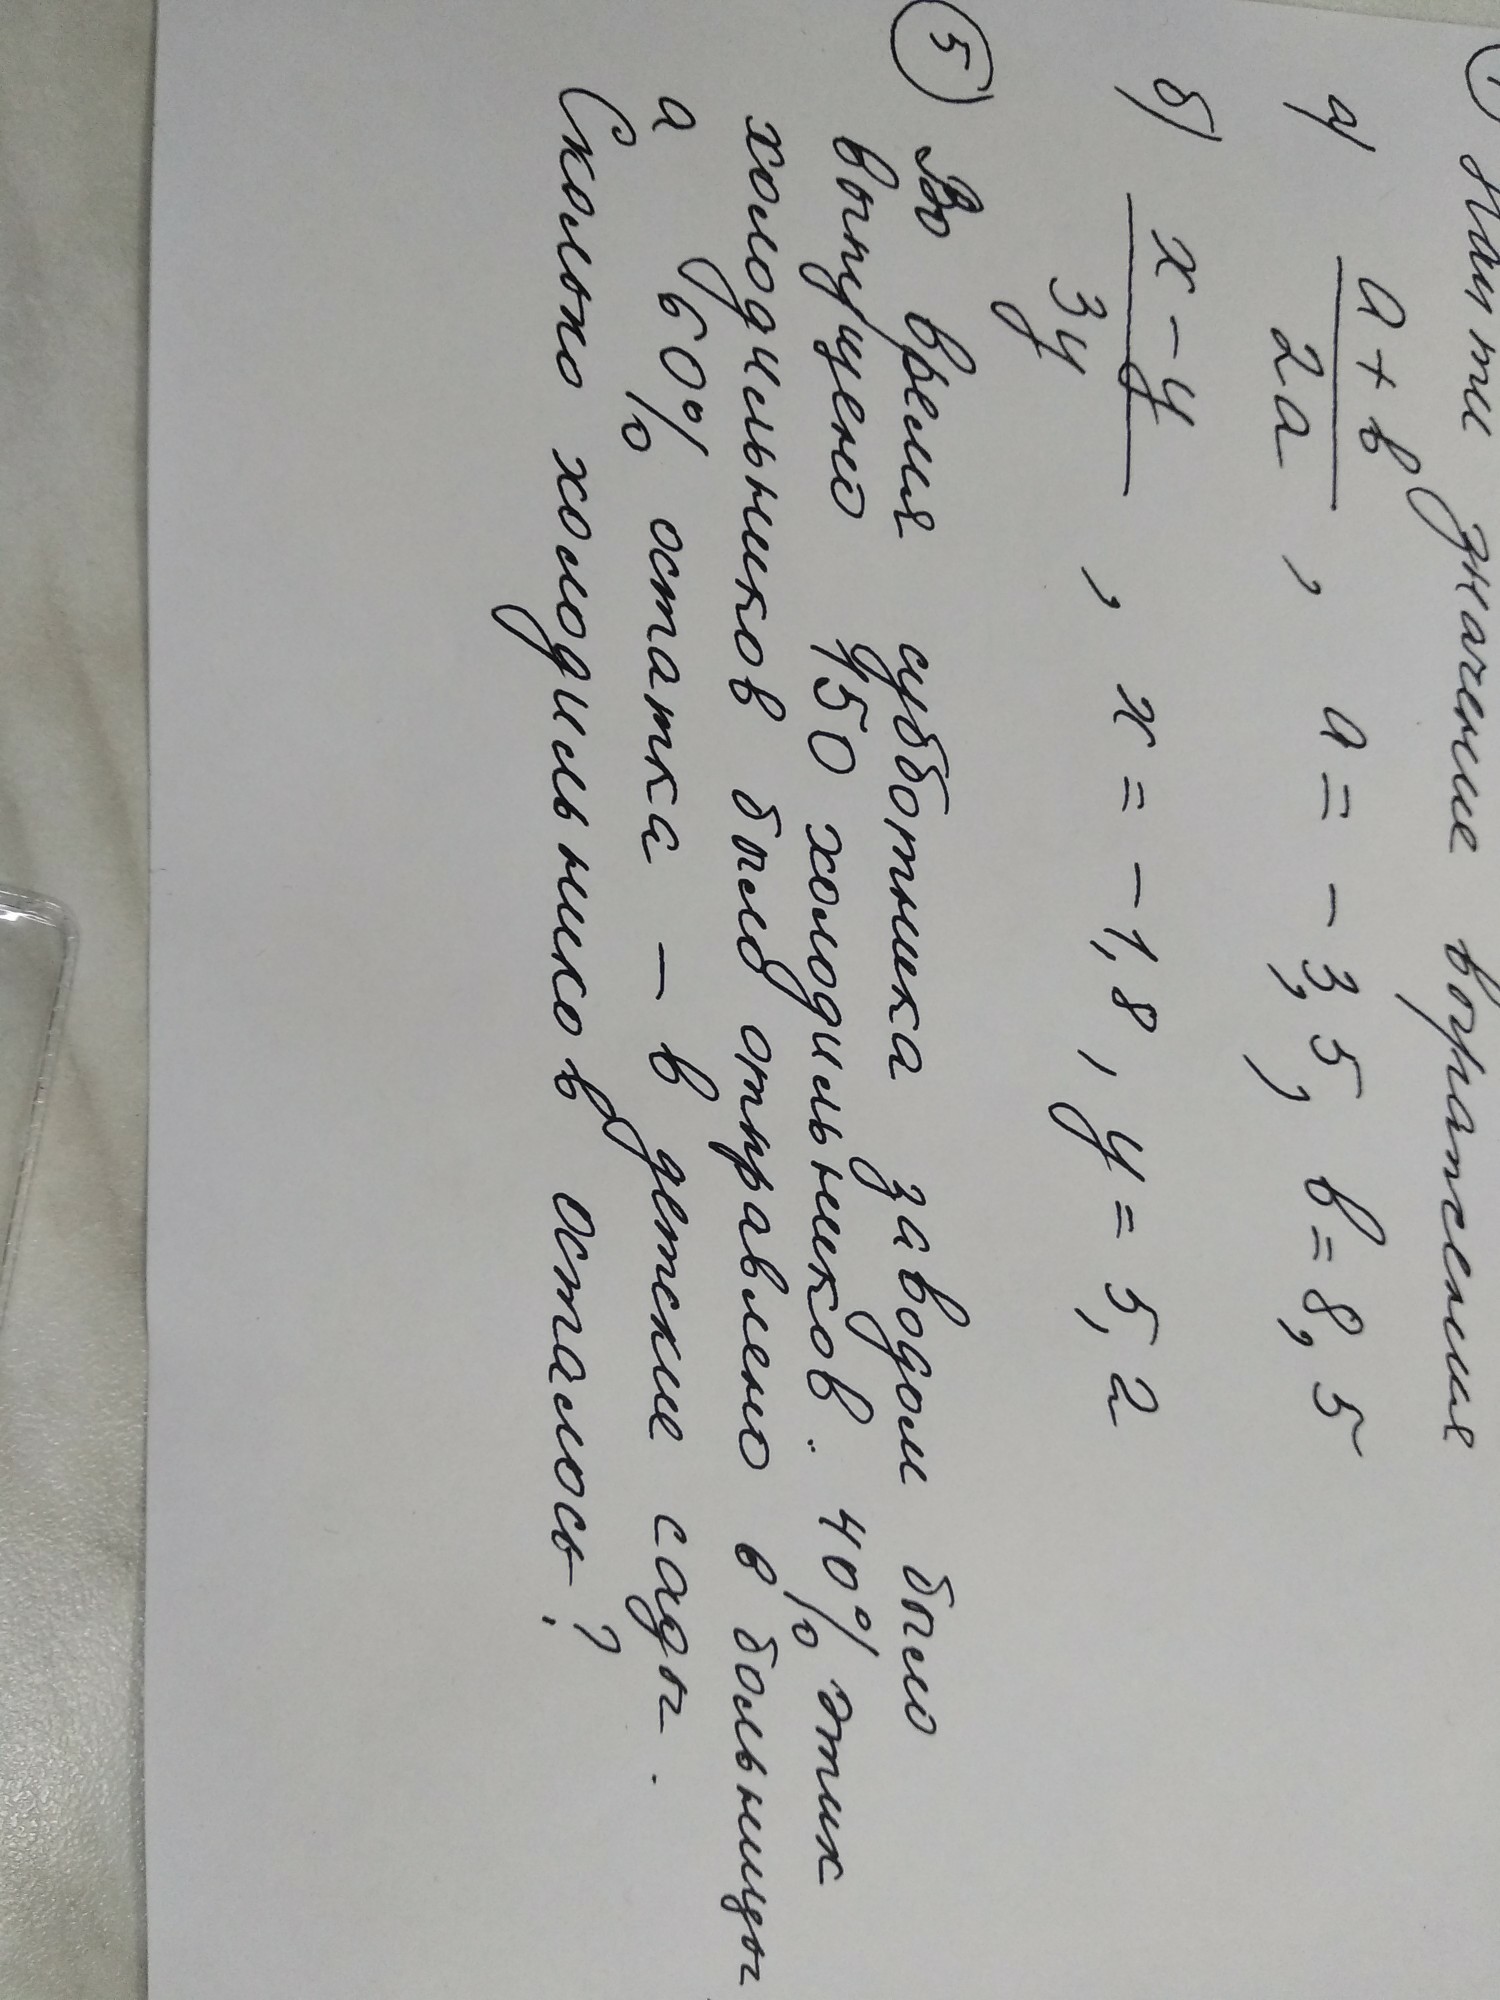 Найти значение выражения
а) a + b / 2a , a = - 3,5, b = 8,5
б) x - y / 3y , x = - 1,8 , y = 5,2
5) Во время субботника заводом было
выпущено 150 холодильников. 40% этих
холодильников было отправлено в больницы
а 60% остатка – в детские сады.
Сколько холодильников осталось?